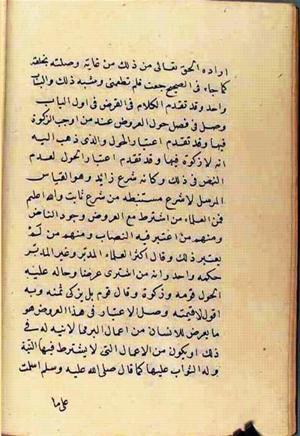 اراده الحق تعالى من ذلك من غاية وصلته بخلقه
كما جاء في الصحيح جعت فلم تطعمني وشبه ذلك والباب
واحد وقد تقدم الكلام في القرض في اول الباب
وصل في فصل حول العروض عند من اوجب الزكوة
فيها وقد تقدم اعتبار الحول والذي ذهب اليه
انه لا زكوة فيها وقد تقدم اعتبار الحول لعدم
النص في ذلك وكانه شرع زائد وهو القياس
المرسل لا شرع مستنبط من شرع ثابت والله اعلم
فمن العلماء من اشترط مع العروض وجود الناض
ومنهم من اعتبر فيه النصاب ومنهم من لم
يعتبر ذلك وقال اكثر العلماء المدير وغير المدير
حكمه واحد وانه من اشترى عرضا وحال عليه
الحول قومه وزكوة وقال قوم بل يزكى ثمنه وبه
اقول لا قيمته وصل الاعتبار في هذا العروض هو
ما يعرض للانسان من اعمال البر مما لا نية له في
ذلك او يكون من الاعمال التي لا يشترط فيها النية
وله الثواب عليها كما قال صلى الله عليه وسلم اسلمت
على ما